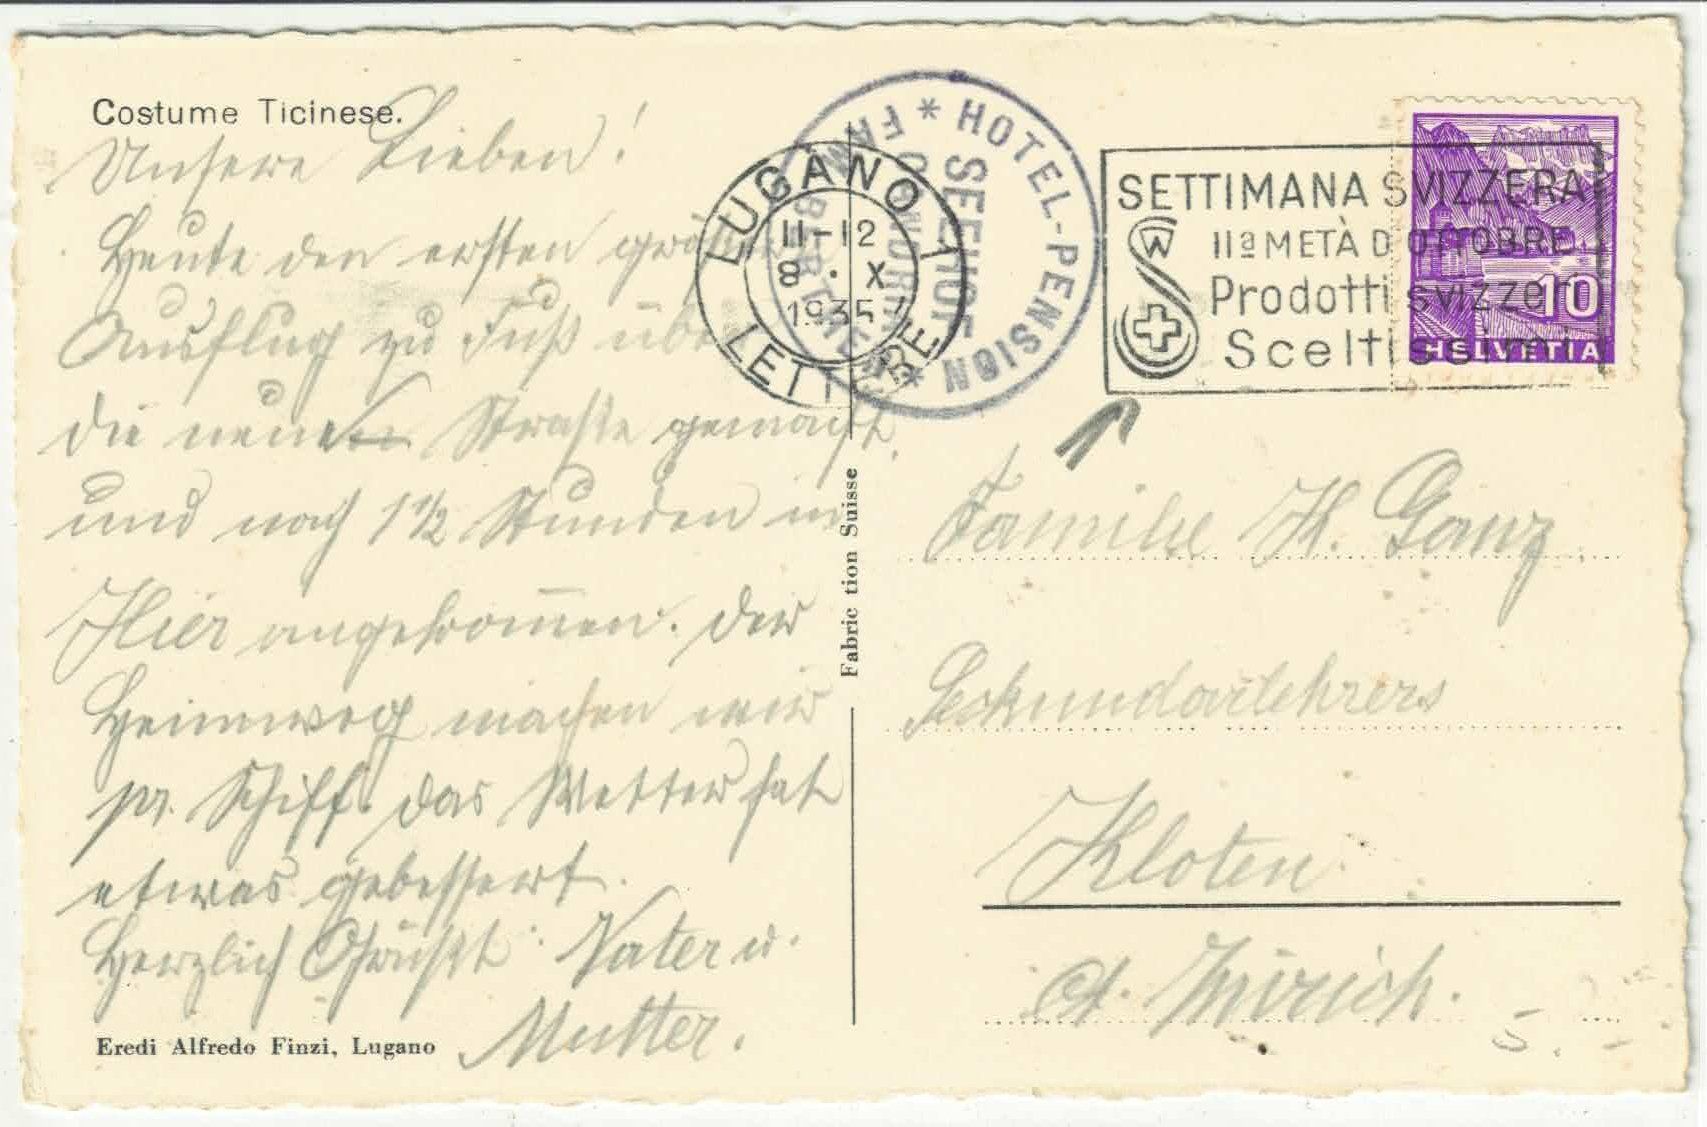 Costume Ticinese.
Unsere Lieben!
Heute den ersten
Ausflug zu Fuß
die neue Straße gemacht,
und nach 1 1/2 Stunden in
Hier angekommen. Der
Heimweg machen wir
pr. Schiff. Das Wetter hat
etwas gebessert.
Herzlich Grüßt Vater u.
Mutter.
Eredi Alfredo Finzi, Lugano
Fabric tion Suisse
LUGANO 1
11-12
8 . X
1935
LETTERE
* HOTEL-PENSION *
SEEHOF
SETTIMANA SVIZZERA
IIª METÀ D'OTTOBRE
Prodotti svizzeri
Sceltissimi
10
HELVETIA
Familie H. Ganz
Sekundarlehrers
Kloten
Ct. Zürich.